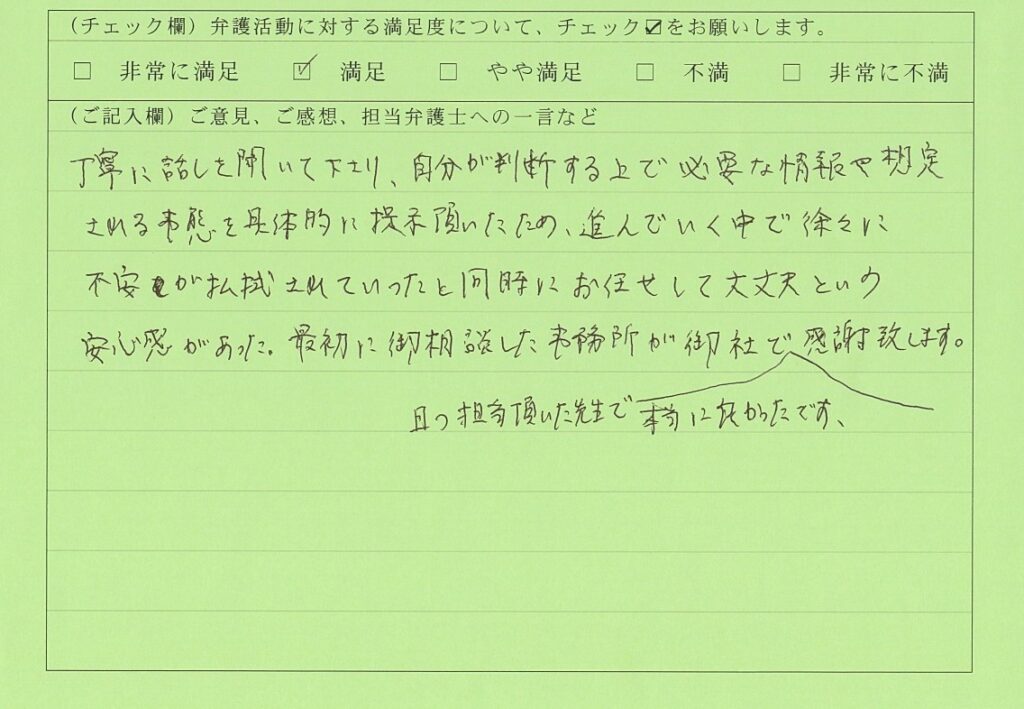 (チェック欄)弁護活動に対する満足度について、チェック☑をお願いします。
□ 非常に満足 ☑ 満足 □ やや満足 □ 不満 □ 非常に不満
(ご記入欄)ご意見、ご感想、担当弁護士への一言など
丁寧に話しを聞いて下さり、自分が判断する上で必要な情報や想定
される事態を具体的に提示頂いたため、進んでいく中で徐々に
不安が払拭されていったと同時にお任せして大丈夫という
安心感があった。最初に御相談した事務所が御社で感謝致します。
且つ担当頂いた先生で本当に良かったです、